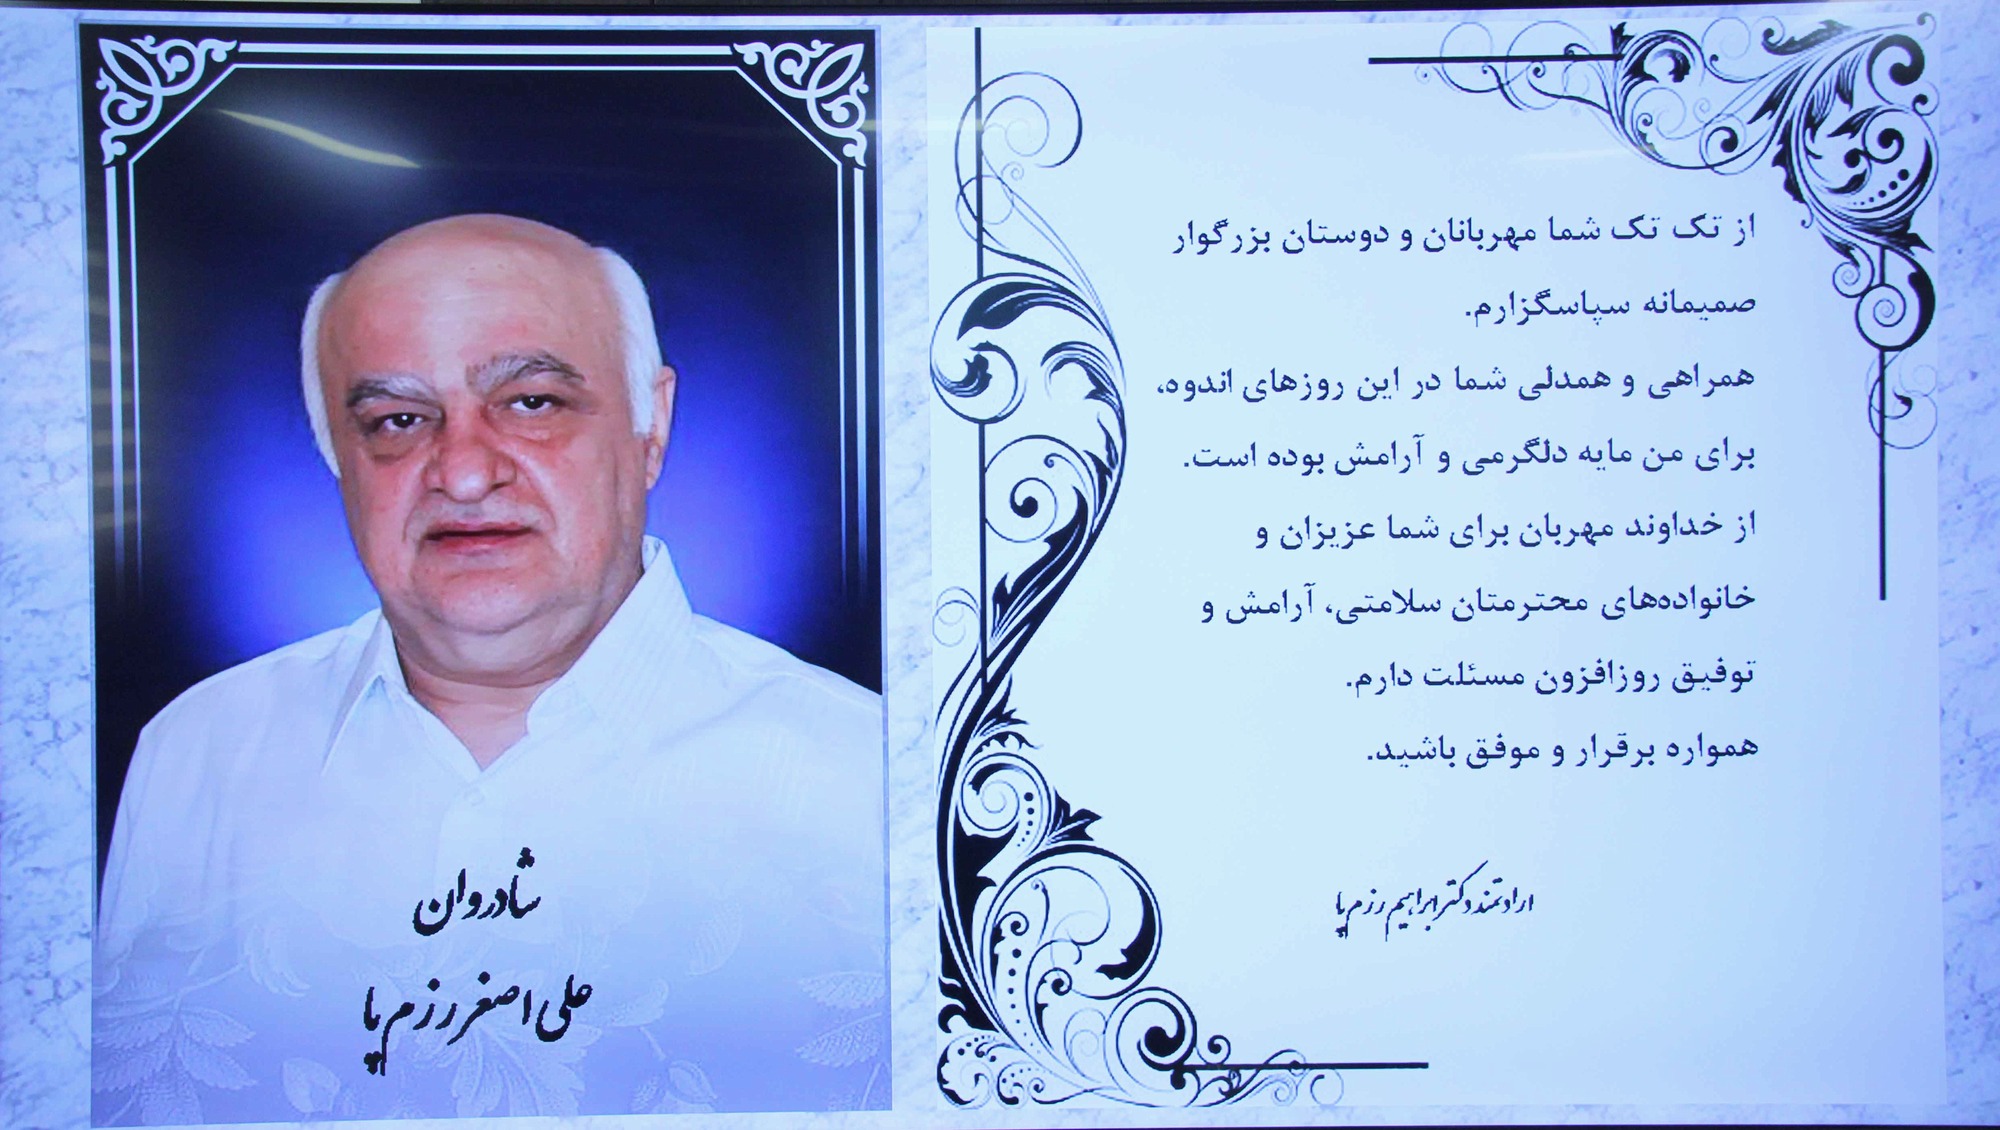 از تک تک شما مهربانان و دوستان بزرگوار
صمیمانه سپاسگزارم.
همراهی و همدلی شما در این روزهای اندوه،
برای من مایه دلگرمی و آرامش بوده است.
از خداوند مهربان برای شما عزیزان و
خانواده‌های محترمتان سلامتی، آرامش و
توفیق روزافزون مسئلت دارم.
همواره برقرار و موفق باشید.
ارادتمند دکتر ابراهیم رزم پا
شادروان
علی اصغر رزم پا